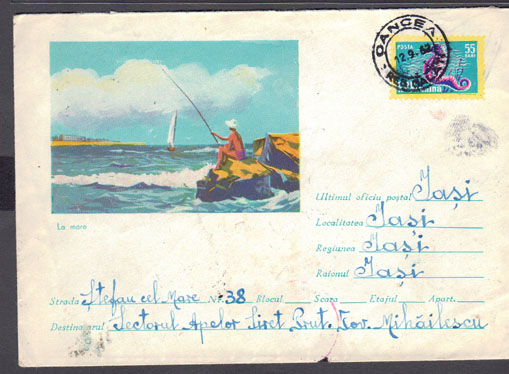 OANCEA
12.9.62
REG. GALAȚI
POSTA
55
BANI
La mare
Ultimul oficiu poștal Iași
Localitatea Iași
Regiunea Iași
Raionul Iași
Strada Ștefan cel Mare Nr. 38 Blocul Scara Etajul Apart.
Destinatarul Sectorul Apelor Siret Prut. Tov. Mihăilescu